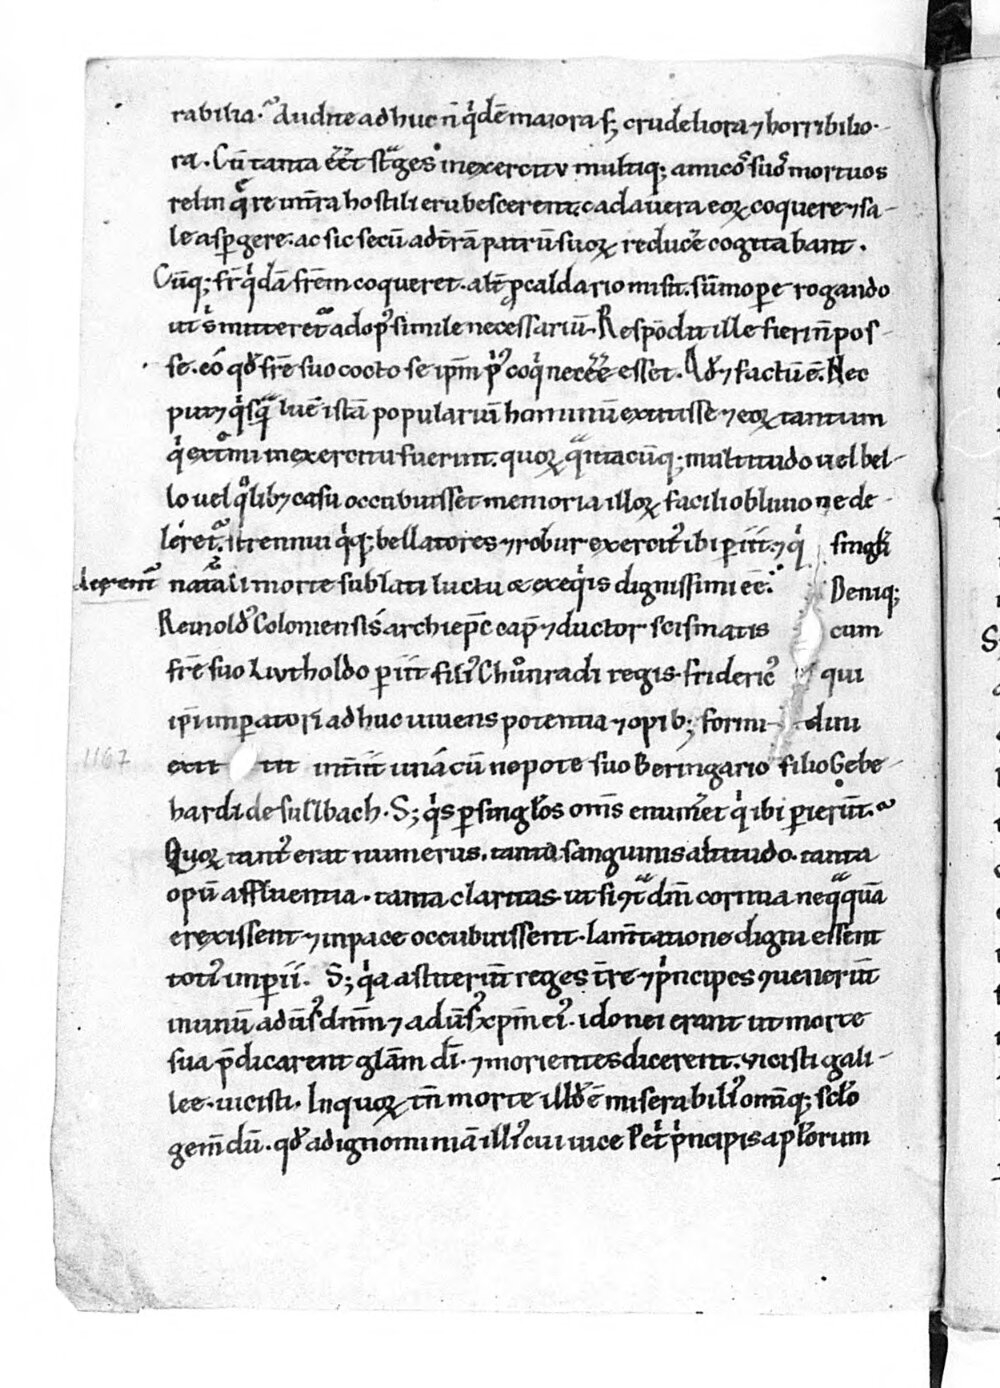 rabilia. Audite adhuc n̄ qͥdē maiora sꝫ crudeliora ⁊ horribilio-
ra. Cū tanta eēt stͣges in exercitu multiqꝫ amicoꝝ suoꝝ mortuos
relinqͤre in t̄ra hostili erubescerent cadauera eoꝝ coquere ⁊ sa-
le asꝑgere. ac sic secū ad t̄rā patrū suoꝝ reducͤe cogitabant.
Cūqꝫ fr̄ qͥdā fr̄em coqueret. alt̄ ꝓ caldario misit. sūmopere rogando
ut sͥ mitteret᷑ ad opꝰ simile necessariū. Respōdit ille fieri n̄ pos-
se. eo qđ fr̄e suo cocto se ip̄m pꝰ coqͥ necēe esset. Qđ ⁊ factū ē. Nec
putꝫ qͥsqͣ luē istā populariū hominū extitisse ⁊ eoꝝ tantum
qͥ extͤmi in exercitu fuerint. quoꝝ qͣntacūqꝫ multitudo uel bel-
lo uel qͦlibꝫ casu occubuisset memoria illoꝝ facili obliuione de-
leret᷑. strennui qͥqꝫ bellatores ⁊ robur exercitꝰ ibi ꝑiit. ⁊ qͥ singli
deperent᷑ naturali morte sublati luctu & exeqͥis dignissimi eē. Deniqꝫ
Reinoldꝰ Coloniensis archiep̄c capꝫ ⁊ ductor scismatis cum
fr̄e suo Liutholdo ꝑiit filiꝰ Chuͦnradi regis. fridericꝰ qui
ip̄i imꝑatori adhuc uiuens potentia ⁊ opibꝫ formi- dini
extitit int̄iit unā cū nepote suo Beringario filio Gebe-
1167
hardi de sulbach. Sꝫ qͥs ꝑ singlos om̄s enumͤet qͥ ibi ꝑierūt.
Quoꝝ tantꝰ erat numerus. tanta sanguinis altitudo. tanta
opū affluentia. tanta claritas. ut si ꝯt͂ dm̄ cornua neqͣquā
erexissent ⁊ in pace occubuissent. lam̄tatione digni essent
totiꝰ imꝑii. Sꝫ qͥa astiterūt reges t̄re ⁊ pͥncipes ꝯuenerūt
in unū aduꝰs dn̄m ⁊ aduꝰs xp̄m eiꝰ. idonei erant ut morte
sua p̄dicarent glam di. ⁊ morientes dicerent. uicisti gali-
lee. uicisti. In quoꝝ tn̄ morte illđ ē miserabiliꝰ omīqꝫ sclo
gem̄dū. qđ ad ignominiā illiꝰ cui uice Pet̄ pͥncipis apl̄orum